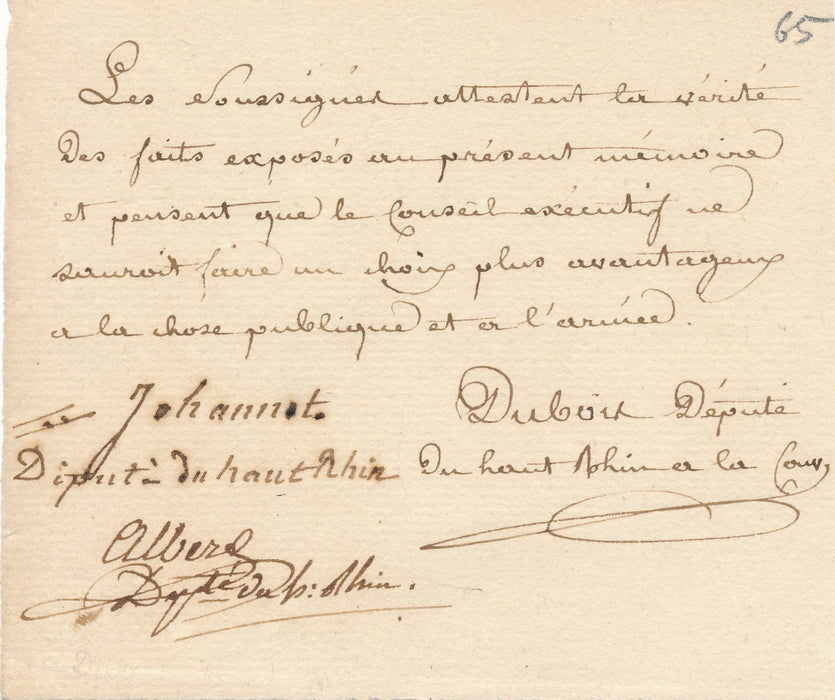 65
Les soussignés attestent la vérité
des faits exposés au présent mémoire
et pensent que le Conseil exécutif ne
sauroit faire un choix plus avantageux
a la chose publique et a l'armée.
Johannot.
Député du haut Rhin
Dubois Député
du haut Rhin a la Conv,
Albert
Dépté du h: Rhin.